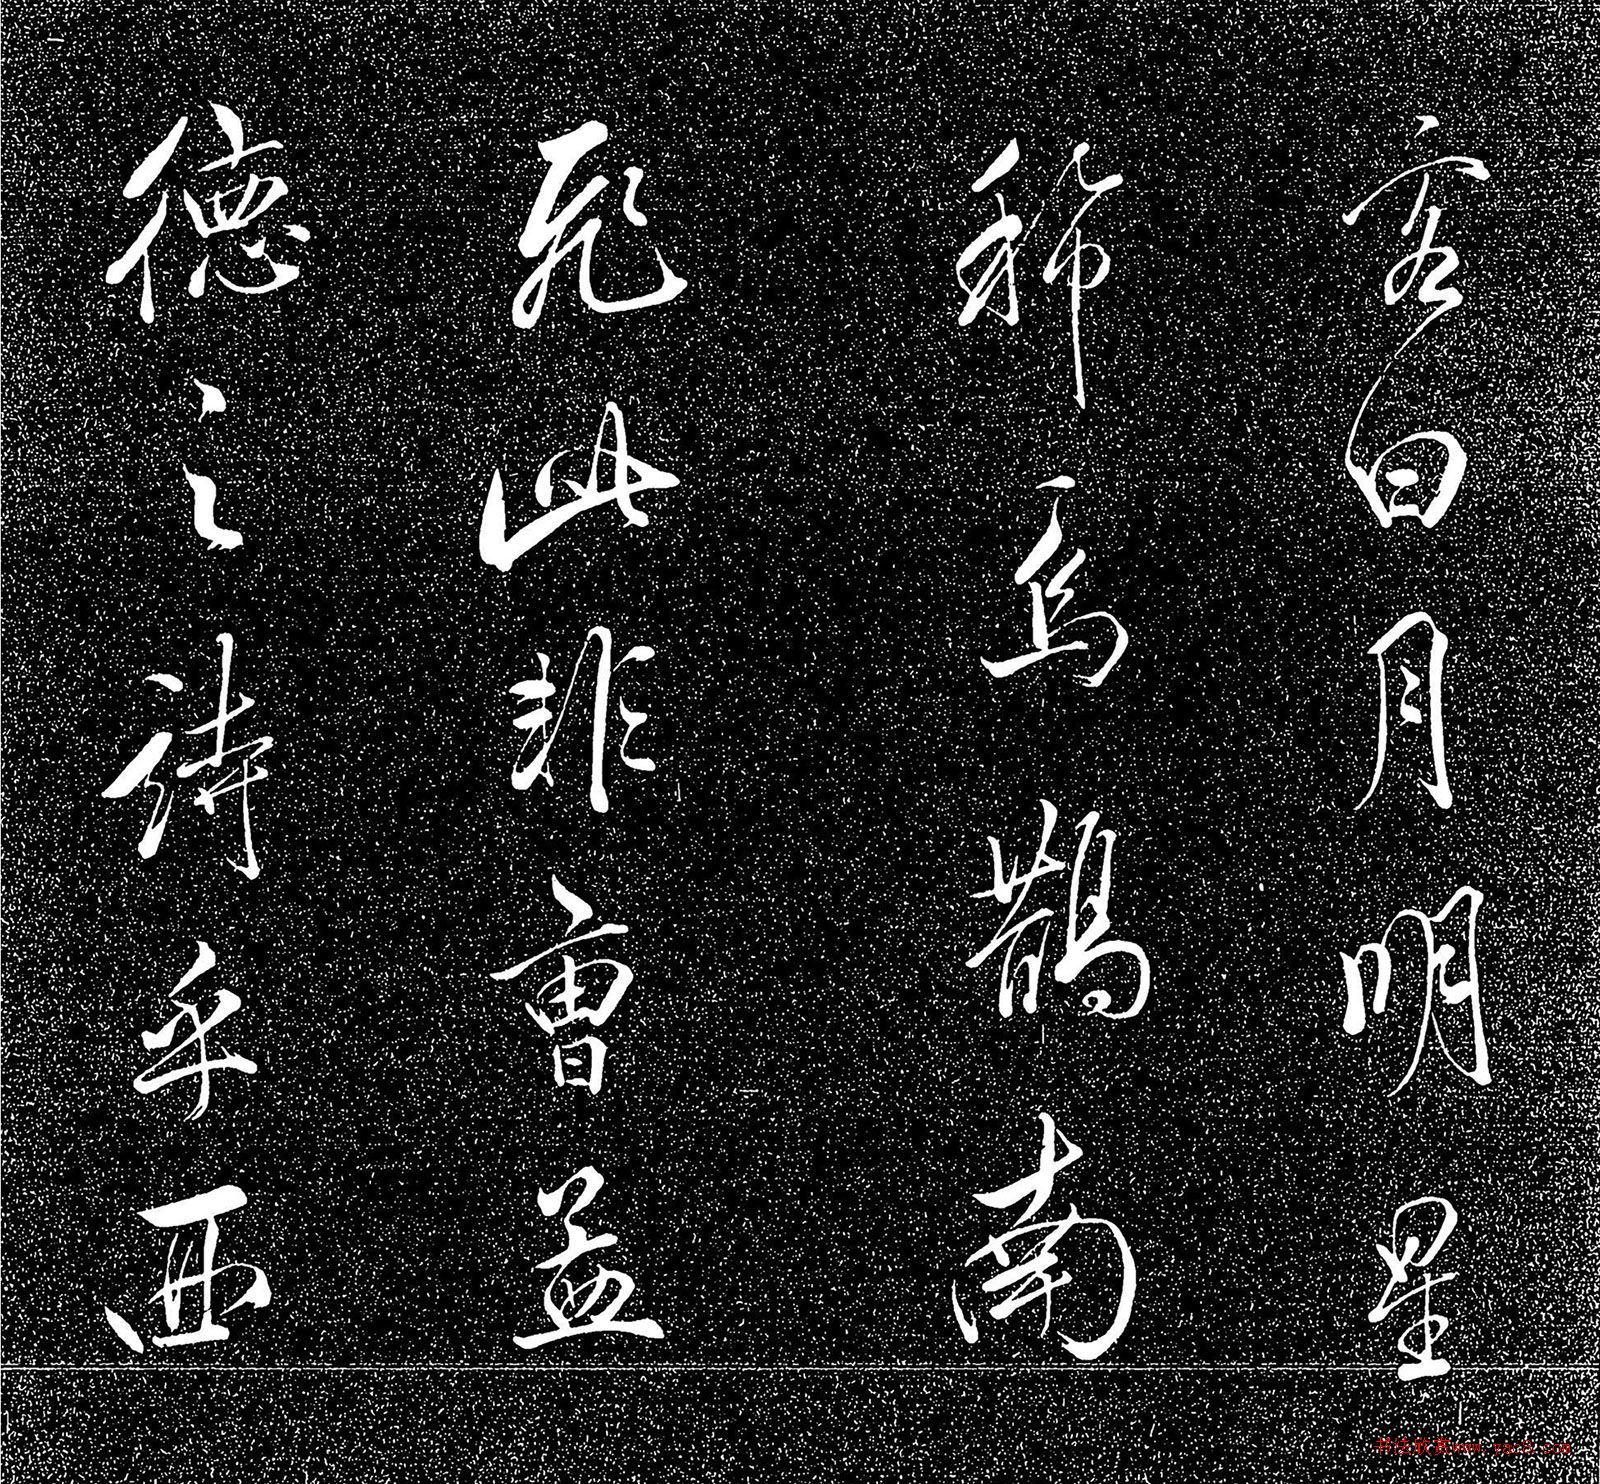 客曰月明星
稀烏鵲南
飛此非曹孟
德之詩乎西
书法欣赏www.yac8.com